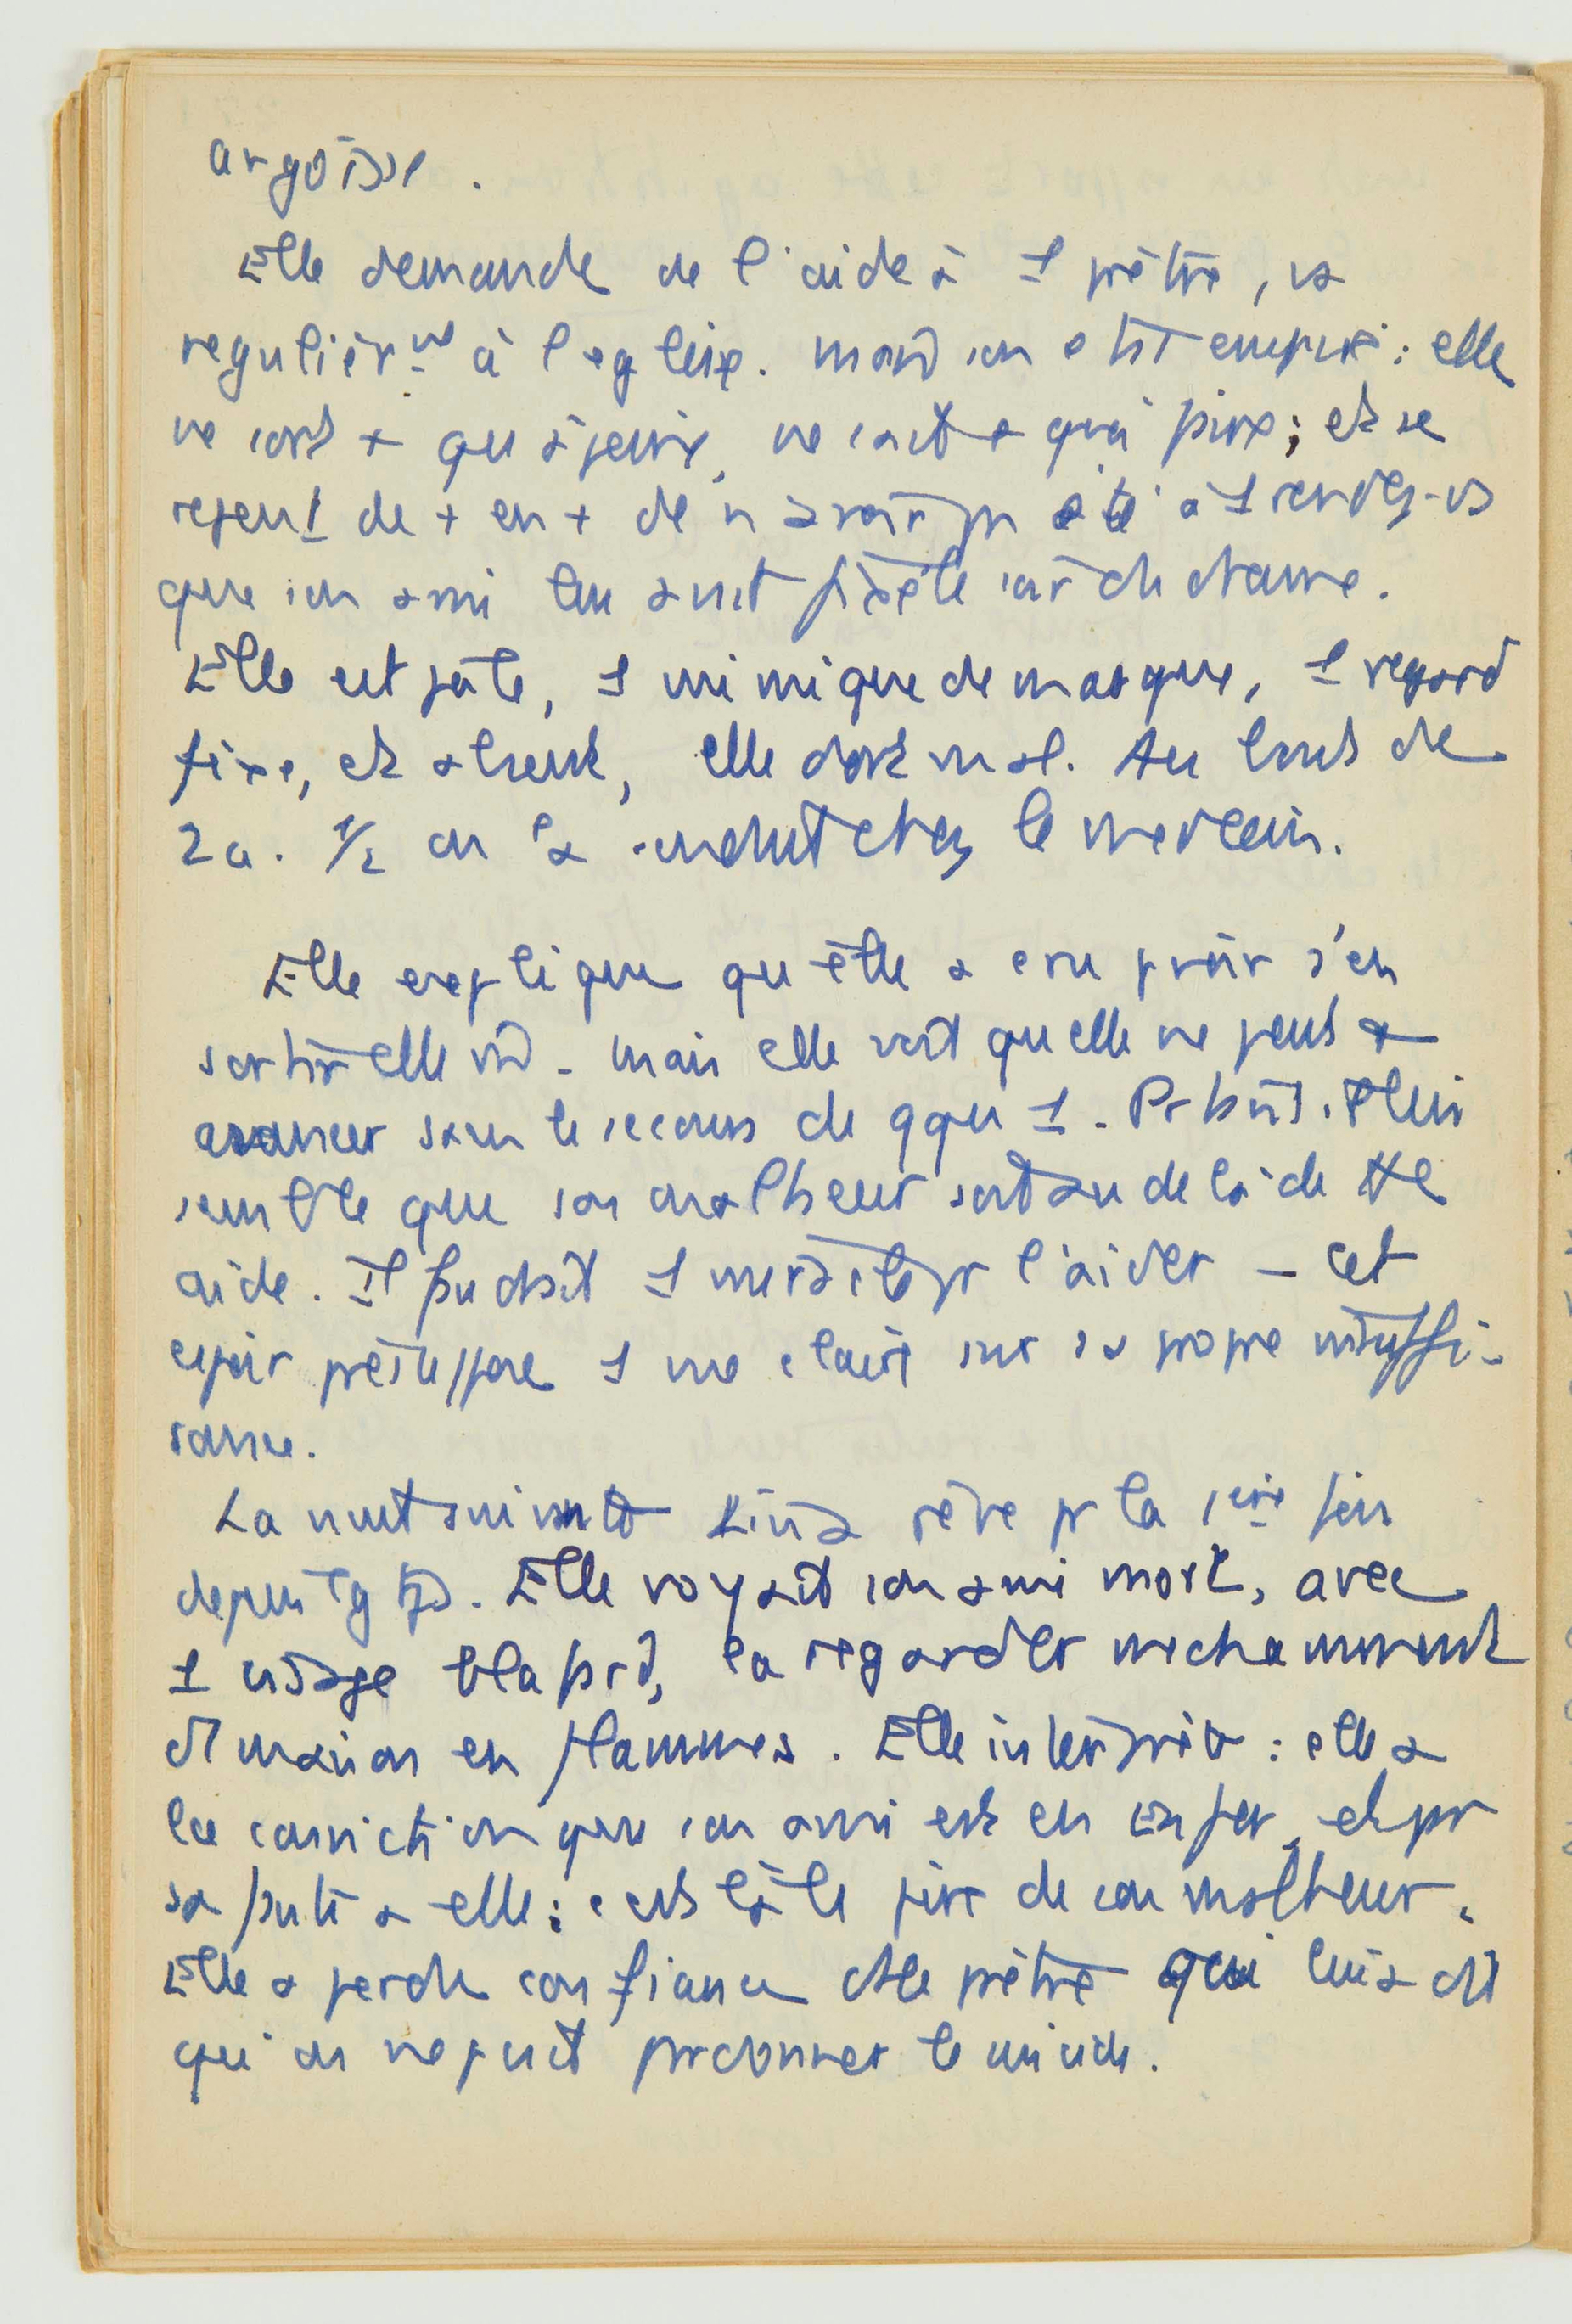 angoisse.
Elle demande de l'aide à 1 prêtre, va
régulièrt à l'église. mais son état empire : elle
ne sort + qu'à peine, ne sait + qu'à prier ; et se
repent de + en + de n'avoir pr été à 1 rendez-vs
que son ami lui avait fixé le soir du drame.
Elle est pâle, 1 mimique de masque, 1 regard
fixe, et absent, elle dort mal. Au bout de
2 a. 1/2 on la conduit chez le médecin.
Elle explique qu'elle a cru pvoir s'en
sortir elle mê - mais elle voit qu'elle ne peut +
avancer sans le secours de qqu 1 - Il lui
semble que son malheur soit au delà de tte
aide. Il faudrait 1 miracle pr l'aider - cet
espoir présuppose 1 vue claire sur sa propre insuffi-
sance.
La nuit suivante Lina rêve pr la 1ère fois
depuis lg tps. Elle voyait son ami mort, avec
1 visage blafard, la regarder méchamment
d'1 maison en flammes. Elle interprète : elle a
la conviction que son ami est en Enfer, et pr
sa faute à elle : c'est là le pire de son malheur.
Elle a perdu confiance ds le prêtre qui lui a dit
qu'on ne peut pardonner le suicide.